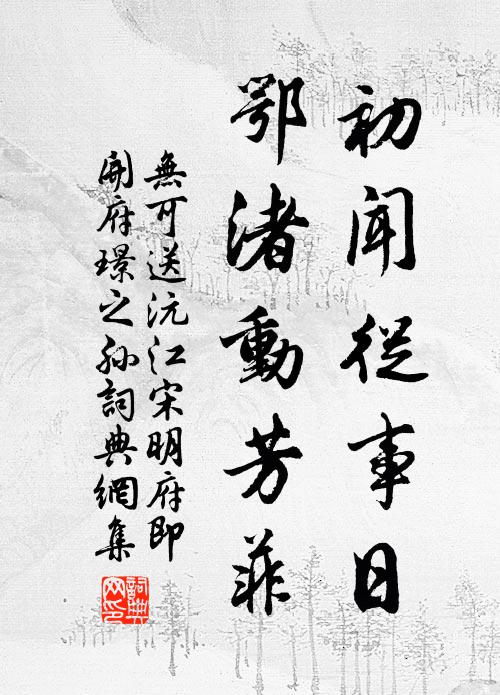 初聞從事日
鄂渚動芳菲
無可送沅江宋明府即
開府璟之孫詞典網集